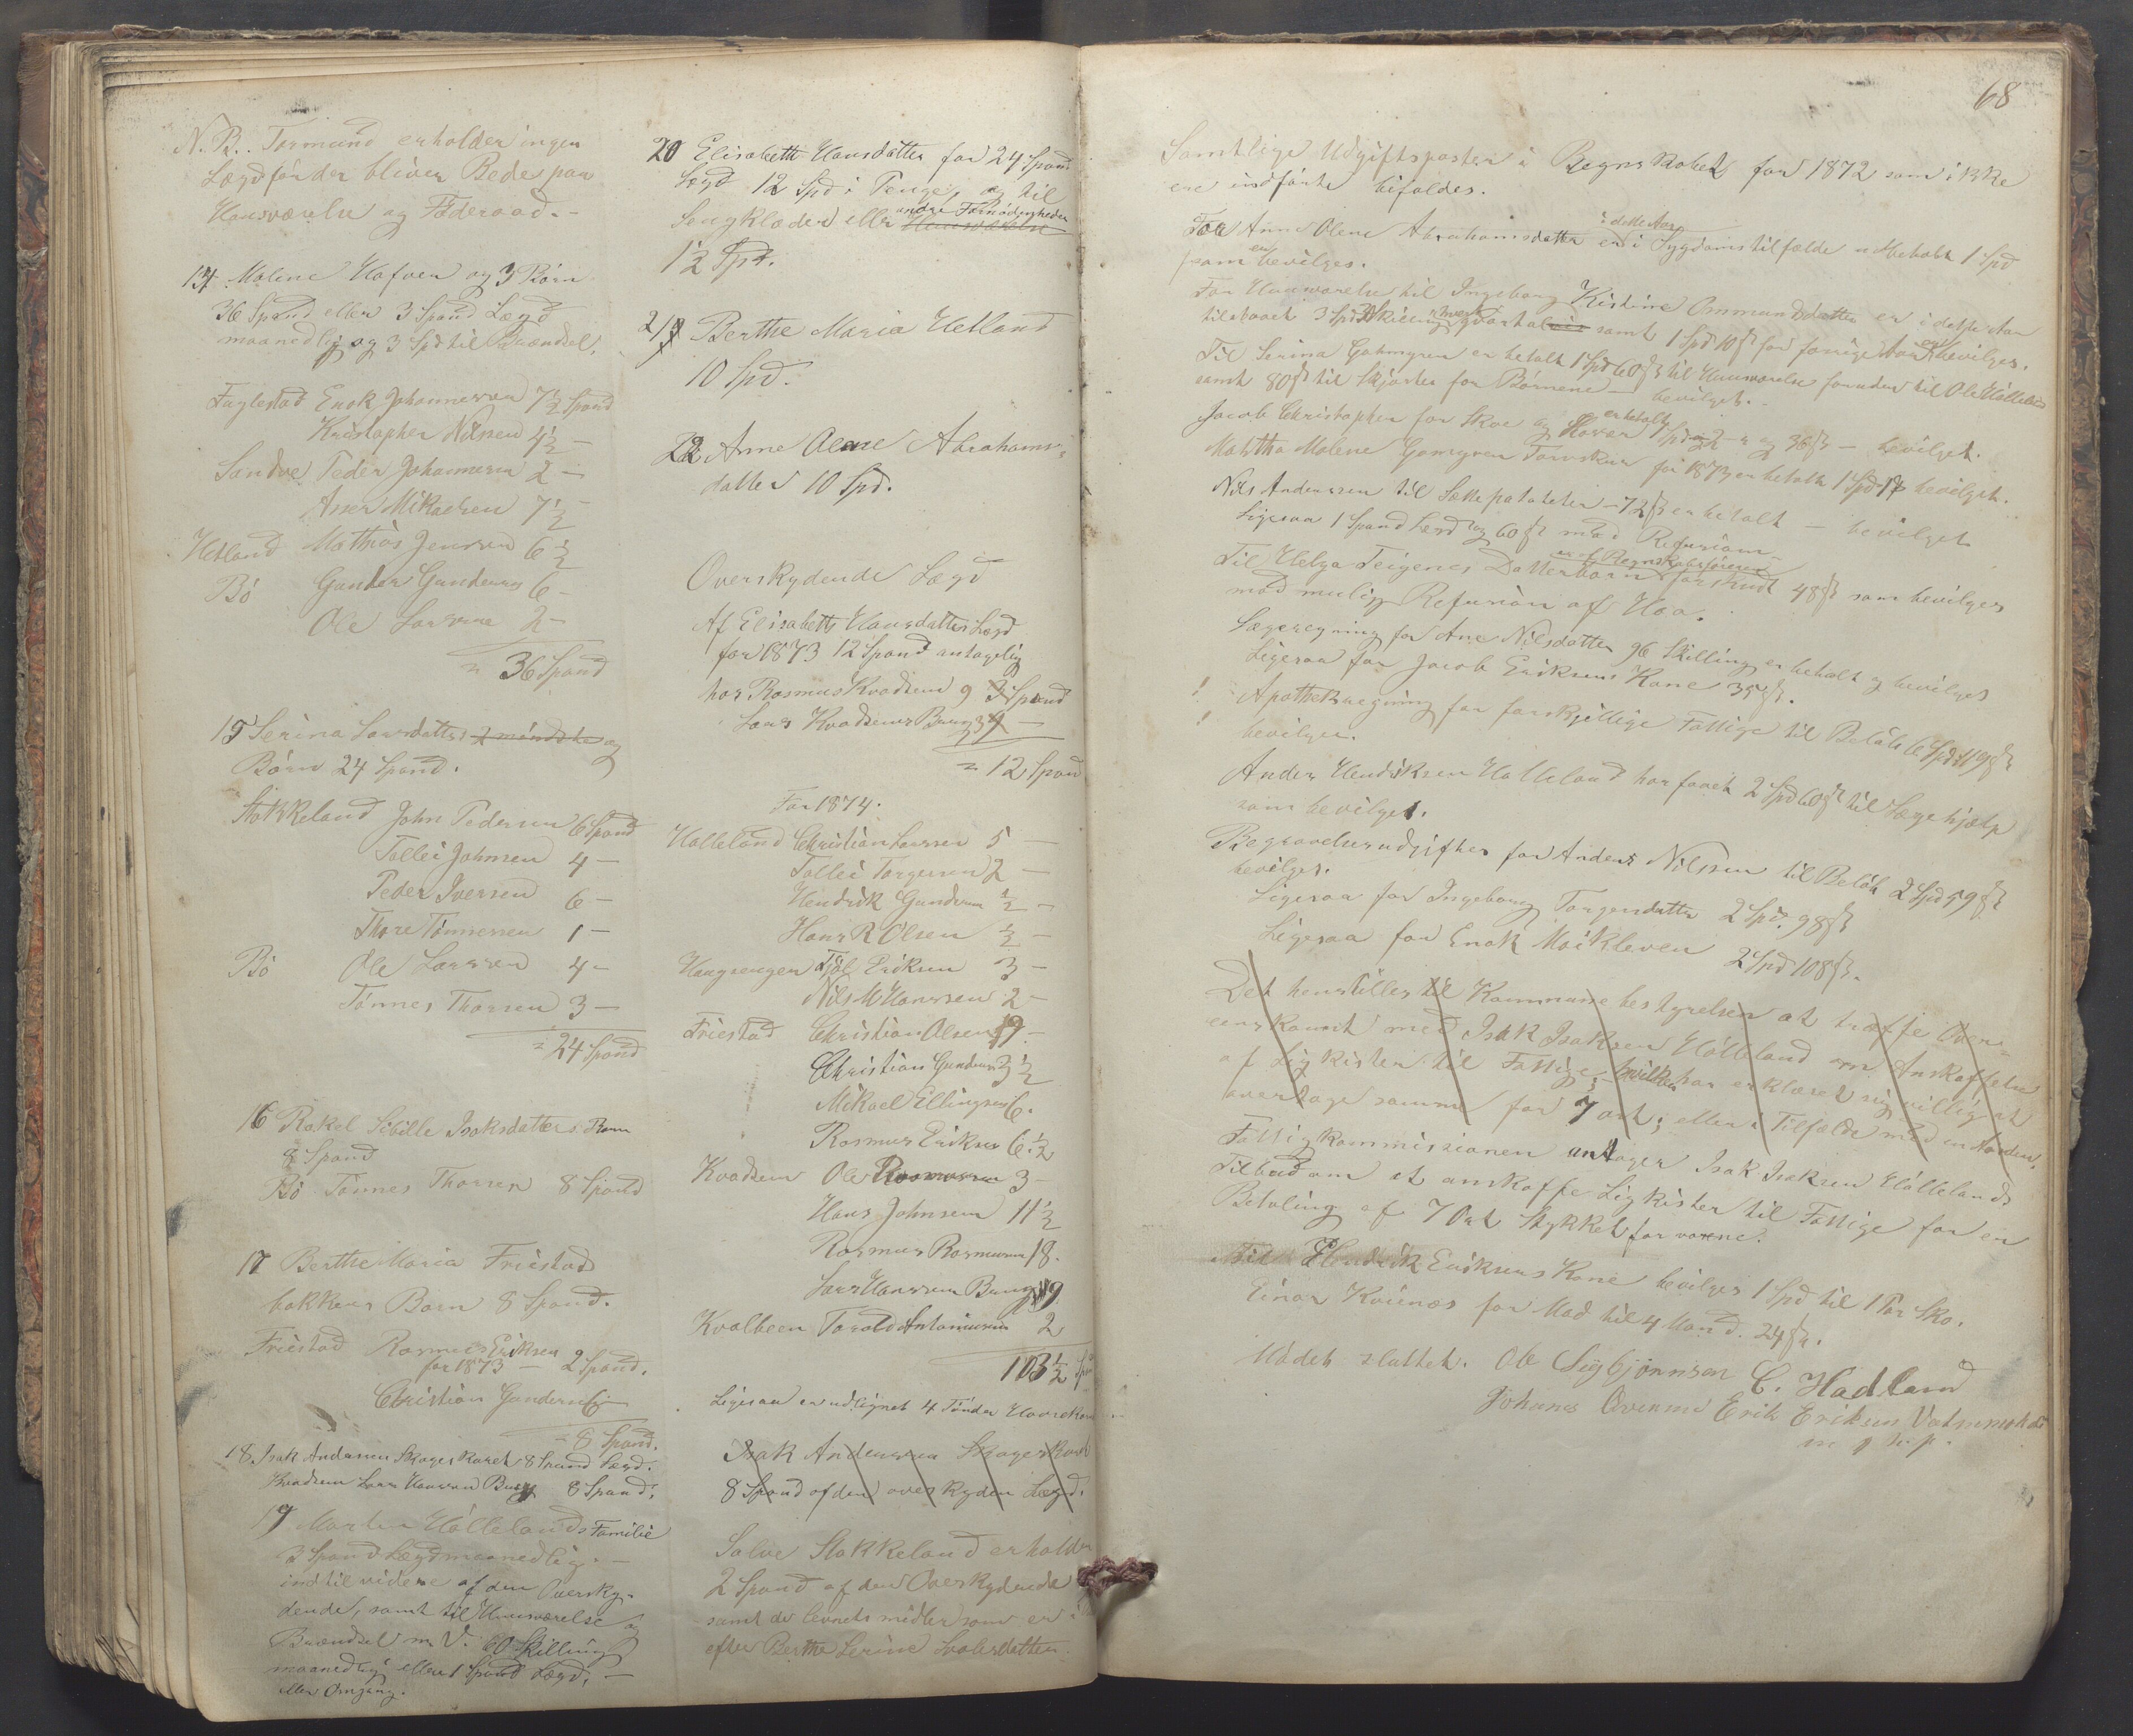 N.B. Tormund erholder ingen
Lægd før der bliver Rede paa
Huusværelse og Føderaad. -
14 Malene Hafven og 3 Børn
36 Spand eller 3 Spand Lægd
maanedlig og 3 Spd til Brændsel.
Fuglestad Enok Johannesen 7½ Spand
Kristopher Nilssen 4½ —
Sandve Peder Johannesen 2 —
Asser Mikaelsen 7½ —
Hetland Mathias Jensen 6½
Bö Gunder Gundersen 6 -
Ole Larsen 2 -
= 36 Spand
15 Serina Larsdatter og
Börn 24 Spand.
Stokkeland John Pedersen 6 Spand
Tollei Johnsen 4 —
Peder Iversen 6 —
Thore Tönnessen 1 —
Bö Ole Larsen 4 —
Tönnes Thorsen 3 —
= 24 Spand
16 Rakel Sibille Isaksdatters Barn
8 Spand
Bö Tönnes Thorsen 8 Spand
17 Berthe Maria Friestad
bakkens Barn 8 Spand.
Friestad Rasmus Eriksen
for 1873 — 2 Spand.
Christian Gundersen 6 —
= 8 Spand.
18. Isak Andersen Skagerkaret 8 Spand Lægd.
Kvadsem Lars Hanssen Buey 8 Spand.
19 Martin Hóllelands Familie
3 Spand Lægd maanedlig. —
indtil videre af den Oversky-
dende, samt til Huusværelse og
Brændsel m. V. 60 Skilling
maanedlig eller 1 Spand Lægd, —
eller Omgang.
20 Elisabeth Hansdatter for 24 Spand
Lægd 12 Spd i Penge, og til
Sengklæder eller andre Fornødenheder Huusværelse
1½ Spd.
21 Berthe Maria Hetland
10 Spd.
22 Anne Olene Abrahams-
datter 10 Spd.
Overskydende Lægd
Af Elisabeth Hansdatters Lægd
for 1873 12 Spand antagelig
hos Rasmus Kvadsem 9 Spand
Lars Kvadsems Buey 3 —
= 12 Spand
For 1874.
Hólleland Christian Larssen 5 —
Tollei Torgersen 2 —
Hendrik Gundersen ½ —
Hans R Olsen ½ —
Haugsengen Kjöl Eriksen 3 —
Nils M Hanssen 2 -
Friestad Christian Olsen 19 -
Christian Gundersen 3½
Mikael Ellingsen 6.
Rasmus Eriksen 6½
Kvadsem Ole Rasmussen 3 -
Hans Johnsen 11½
Rasmus Rasmussen 18.
Lars Hanssen Buey 19
Kvalbeen Torold Antonisen 2
103½ Sp
Ligesaa er udlignet 4 Tønder Havrekorn
Isak Andersen Skagerkaret
8 Spand af den overskyden Lægd.
Salve Stokkeland erholder
2 Spand af den Overskydende
samt de levnets midler som er i
efter Berthe Serine Svalesdatter.
68
Samtlige Udgiftsposter i Regnskabet for 1872 som ikke
ere indførte bifaldes.
For Anne Olene Abrahamsdatter er i dette Aar i Sygdomstilfælde udbetalt 1 Spd
som er bevilges.
For Huusværelse til Ingeborg Kistine Ommundsdatter er i dette Aar
tilstaaet 3 Spd Skilling hvert Qvartal samt 1 Spd 10 ß for forrige Aar er bevilges.
Til Serina Gahmgren er betalt 1 Spd 60 ß til Huusværelse foruden til Ole Hólleland
samt 80 ß til Skjorter for Børnene — bevilget. -
Jacob Christophersen for Skoe og Hoser er betalt 1 Spd og 36 ß — bevilget.
Martha Malene Gamgren Torvskur for 1873 er betalt 1 Spd bevilget.
Nils Anderssen til Sættepotateter — 72 ß er betalt — bevilget
Ligesaa 1 Spand Lægd og 60 ß mod Refusion
Til Helga Teigenes Datterbarn er af Regnskabsføreren forskudt 48 ß som bevilges
mod mulig Refusion af Haa.
Lægeregning for Ane Nilsdatter 96 Skilling er betalt og bevilges
Ligesaa for Jacob Eriksens Kone 35 ß.
! Apothekregning for forskjellige Fattige til Beløb 6 Spd 119 ß
! bevilges.
Anders Hendriksen Hólleland har faaet 2 Spd 60 ß til Lægehjælp
som bevilget.
Begravelsesudgifter for Anders Nilssen til Beløb 2 Spd 59 ß
bevilges.
Ligesaa for Ingeborg Torgersdatter 2 Spd. 98 ß
Ligesaa for Enok Moikleven 2 Spd 108 ß.
Det henstilles til Kommunebestyrelsen at træffe Over-
enskomst med Isak Isaksen Hólleland om Anskaffelse
af Ligkister til Fattige, hvilken har erklæret sig villig at
overtage samme for 7 ort; eller i Tilfælde med en Anden.
Fattigkommissionen antager Isak Isaksen Hóllelands
Tilbud om at anskaffe Ligkister til Fattige for en
Betaling af 7 Ort Stykket for voxne.
Til Hendrik Eriksens Kone bevilges 1 Spd til 1 Par Sko.
Einar Kviinæs for Mad til 4 Mand. 24 ß.
Mødet sluttet. Ole Sigbjørnsen C. Hadland
Johanes Ovensen Erik Eriksen Vatnemork
m. p. p.